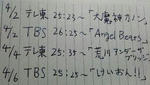 4/2 テレ東 25:23~「大魔神カノン」
4/2 TBS 26:25~「Angel Beats」
4/4 テレ東 25:35~「荒川アンダーザブリッジ」
4/6 TBS 25:25~「けいおん!!」